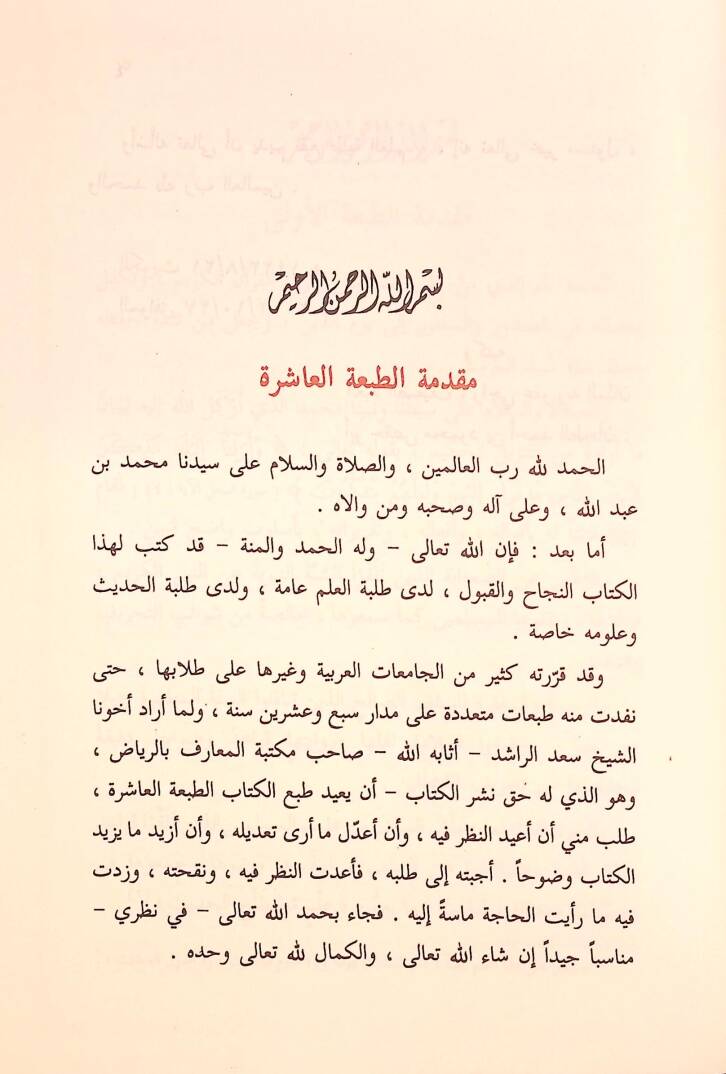 بسم الله الرحمن الرحيم
مقدمة الطبعة العاشرة
الحمد لله رب العالمين ، والصلاة والسلام على سيدنا محمد بن
عبد الله ، وعلى آله وصحبه ومن والاه .
أما بعد : فإن الله تعالى – وله الحمد والمنة – قد كتب لهذا
الكتاب النجاح والقبول ، لدى طلبة العلم عامة ، ولدى طلبة الحديث
وعلومه خاصة .
وقد قرّرته كثير من الجامعات العربية وغيرها على طلابها ، حتى
نفدت منه طبعات متعددة على مدار سبع وعشرين سنة ، ولما أراد أخونا
الشيخ سعد الراشد – أثابه الله – صاحب مكتبة المعارف بالرياض ،
وهو الذي له حق نشر الكتاب – أن يعيد طبع الكتاب الطبعة العاشرة ،
طلب مني أن أعيد النظر فيه ، وأن أعدّل ما أرى تعديله ، وأن أزيد ما يزيد
الكتاب وضوحاً . أجبته إلى طلبه ، فأعدت النظر فيه ، ونقحته ، وزدت
فيه ما رأيت الحاجة ماسةً إليه . فجاء بحمد الله تعالى – في نظري –
مناسباً جيداً إن شاء الله تعالى ، والكمال لله تعالى وحده .